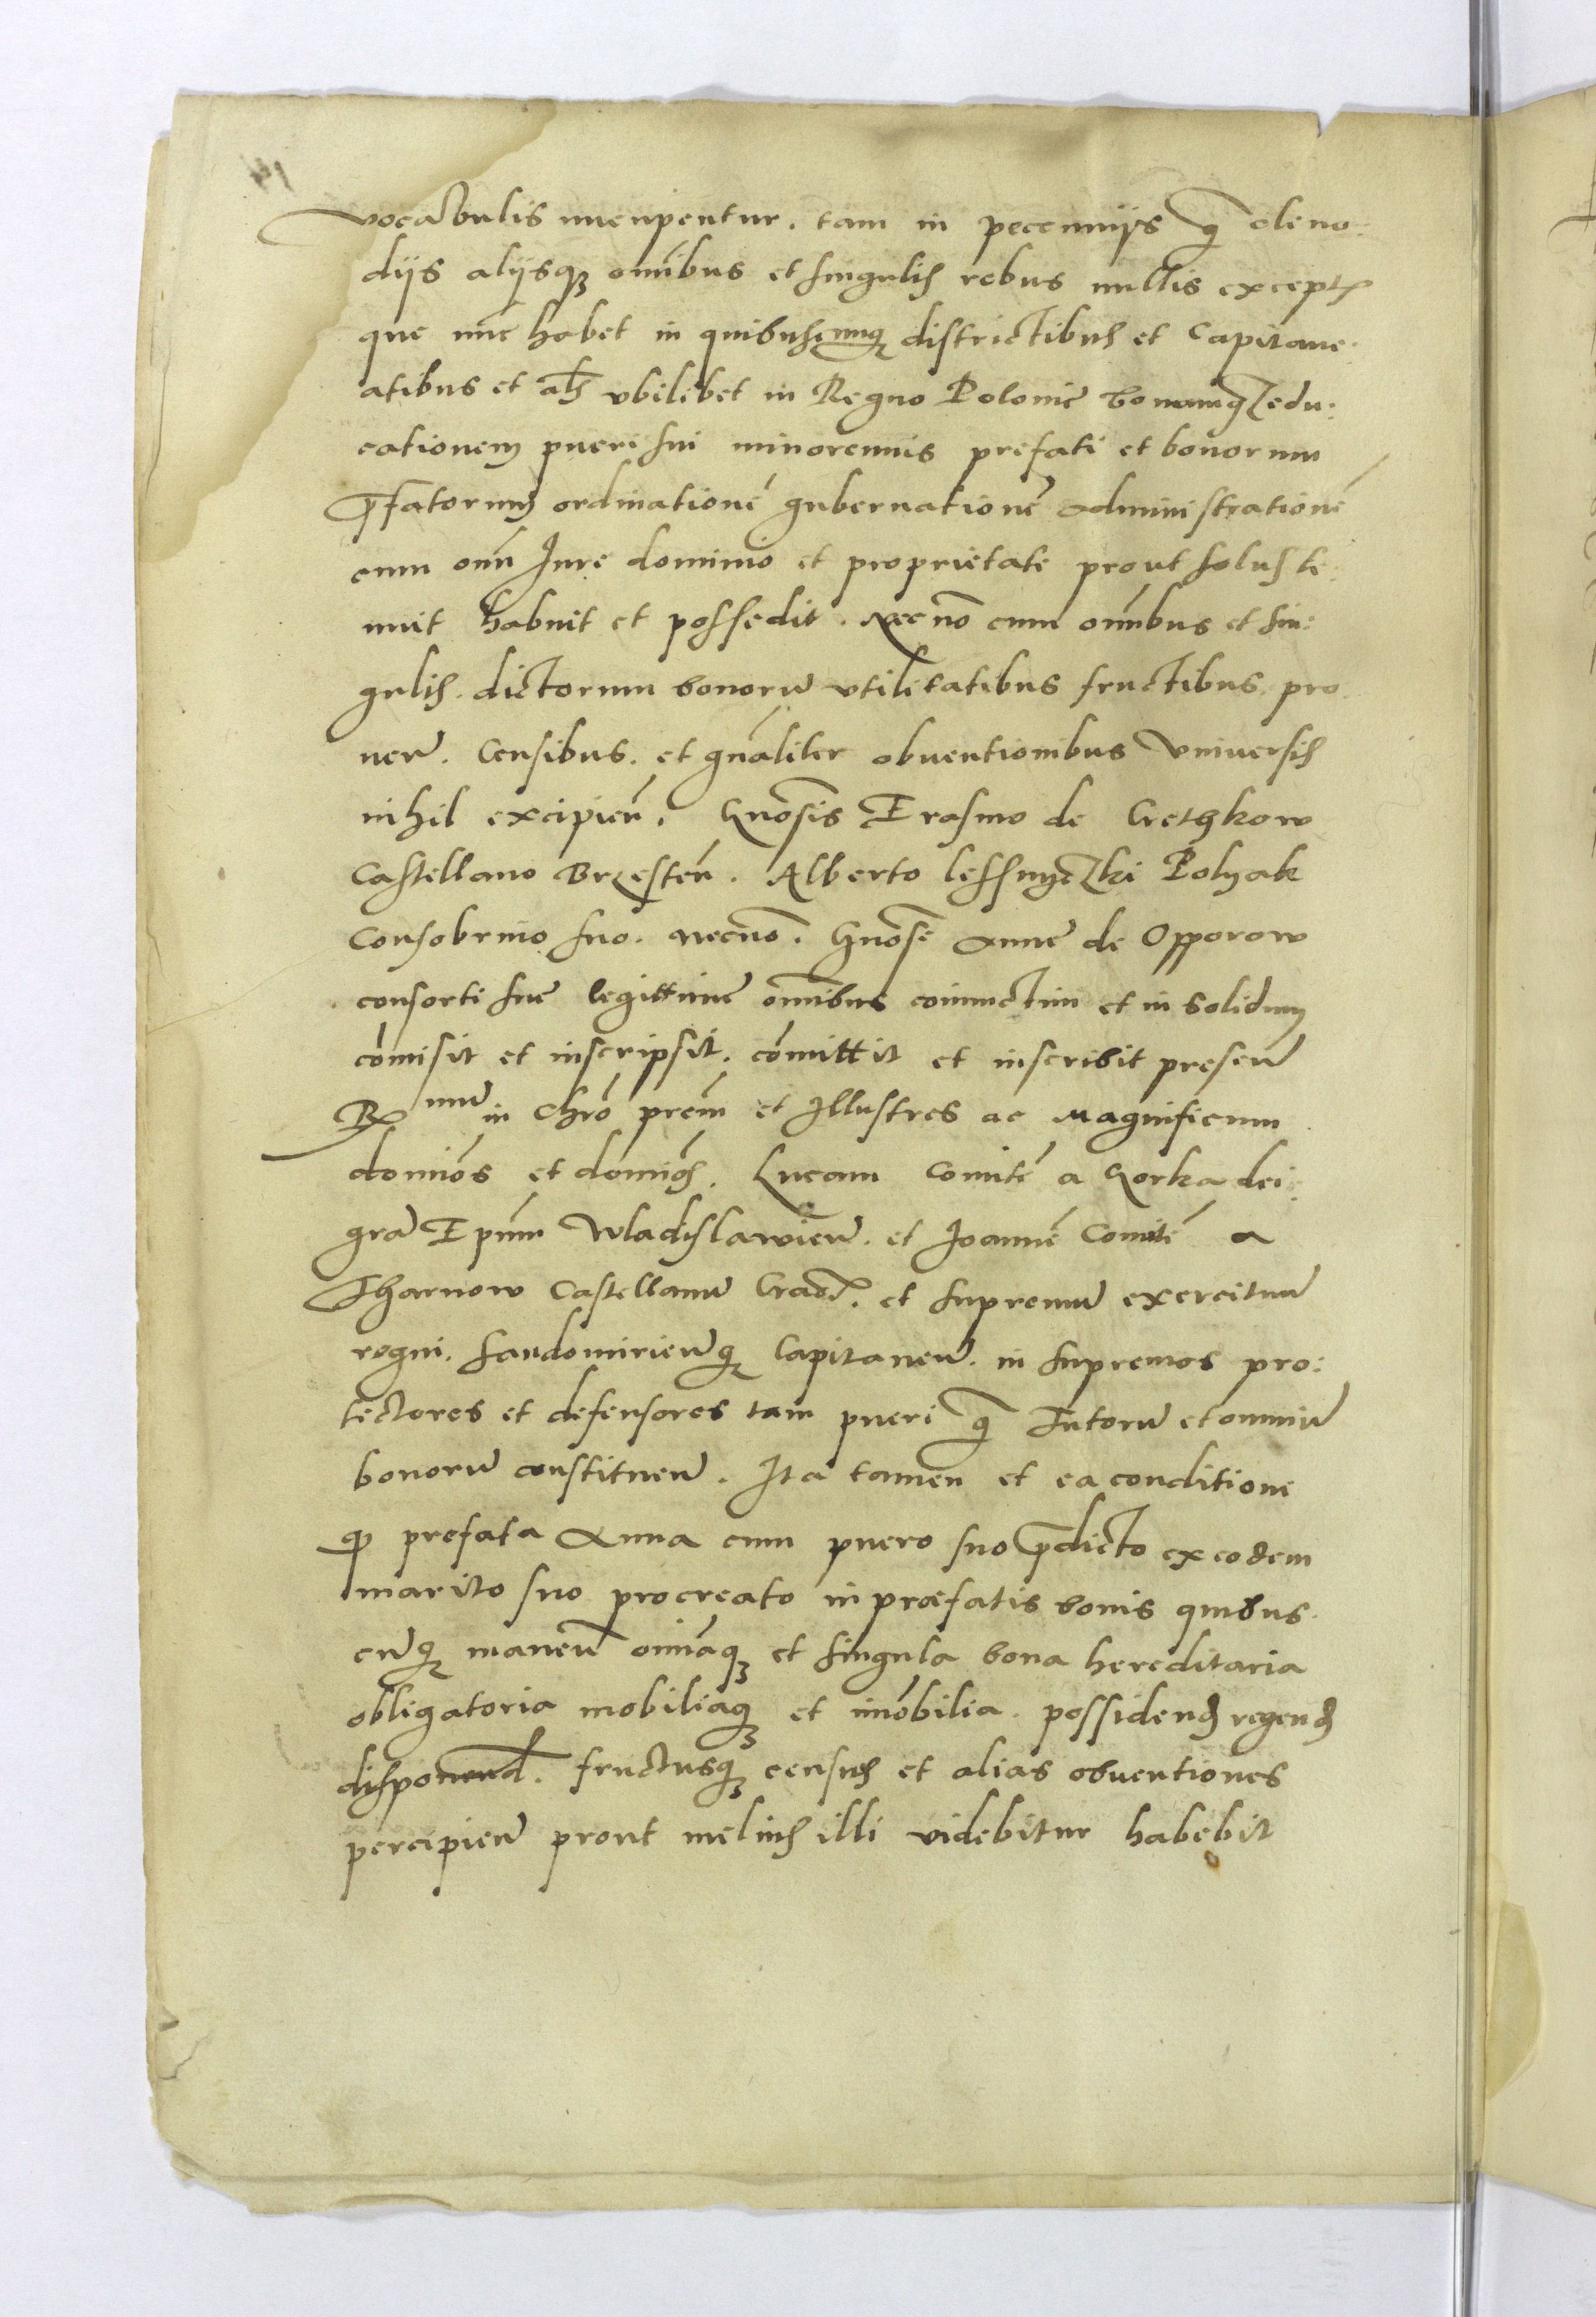 vocabulis nuncupentur. tam in peccuniis q̄ cleno:
diis aliisq3 om̄ibus et singulis rebus nullis except
que nūc habet in quibuscunq3 districtibus et Capitane:
atibus et als ubilibet in Regno Polonie bonamq3 edu:
cationem pueri sui minorennis prefati et bonorum
p̄fatorum ordinationē gubernationē administrationē
cum om̄i Iure dominio et proprietate prout solus te:
nuit habuit et possedit. Necnō cum om̄ibus et sin:
gulis dictorum bonorū utilitatibus fructibus pro
ven̄. Censibus. et gn̄aliter obventionibus Universis
nihil excipien̄. Gn̄osis Erasmo de Crethkow
Castellano Brzesten̄. Alberto Polyak
Consobrino suo. necnō. Gn̄ose Anne de Opporow
consorti sue legittime om̄ibus coniunctim et in solidum
cōmisit et inscripsit. cōmittit et inscribit presen̄
R mū in Chrō prēm et Illustres ac Magnificum
domiōs et domiōs. Lucam Comitē a Gorka dei:
gra Epum̄ Wladislawien̄. et Joannē Comitē a
Tharnow Castellanū Craco. et supremū exercituū
regni. Sandomirien̄q3 Capitaneū. in supremos pro:
tectores et defensores tam pueri q̄ Tutorū et omniū
bonorū constituen̄. Ita tamen et ea conditione
q prefata Anna cum puero suo p̄dicto ex eodem
marito suo procreato in præfatis bonis quibus
cūq3 manen̄ oīnaq3 et singula bona hereditaria
obligatoria mobiliaq3 et imōbilia. possidend regend
disponend. fructusq3 census et alias obventiones
percipien̄ prout melius illi videbitur habebit